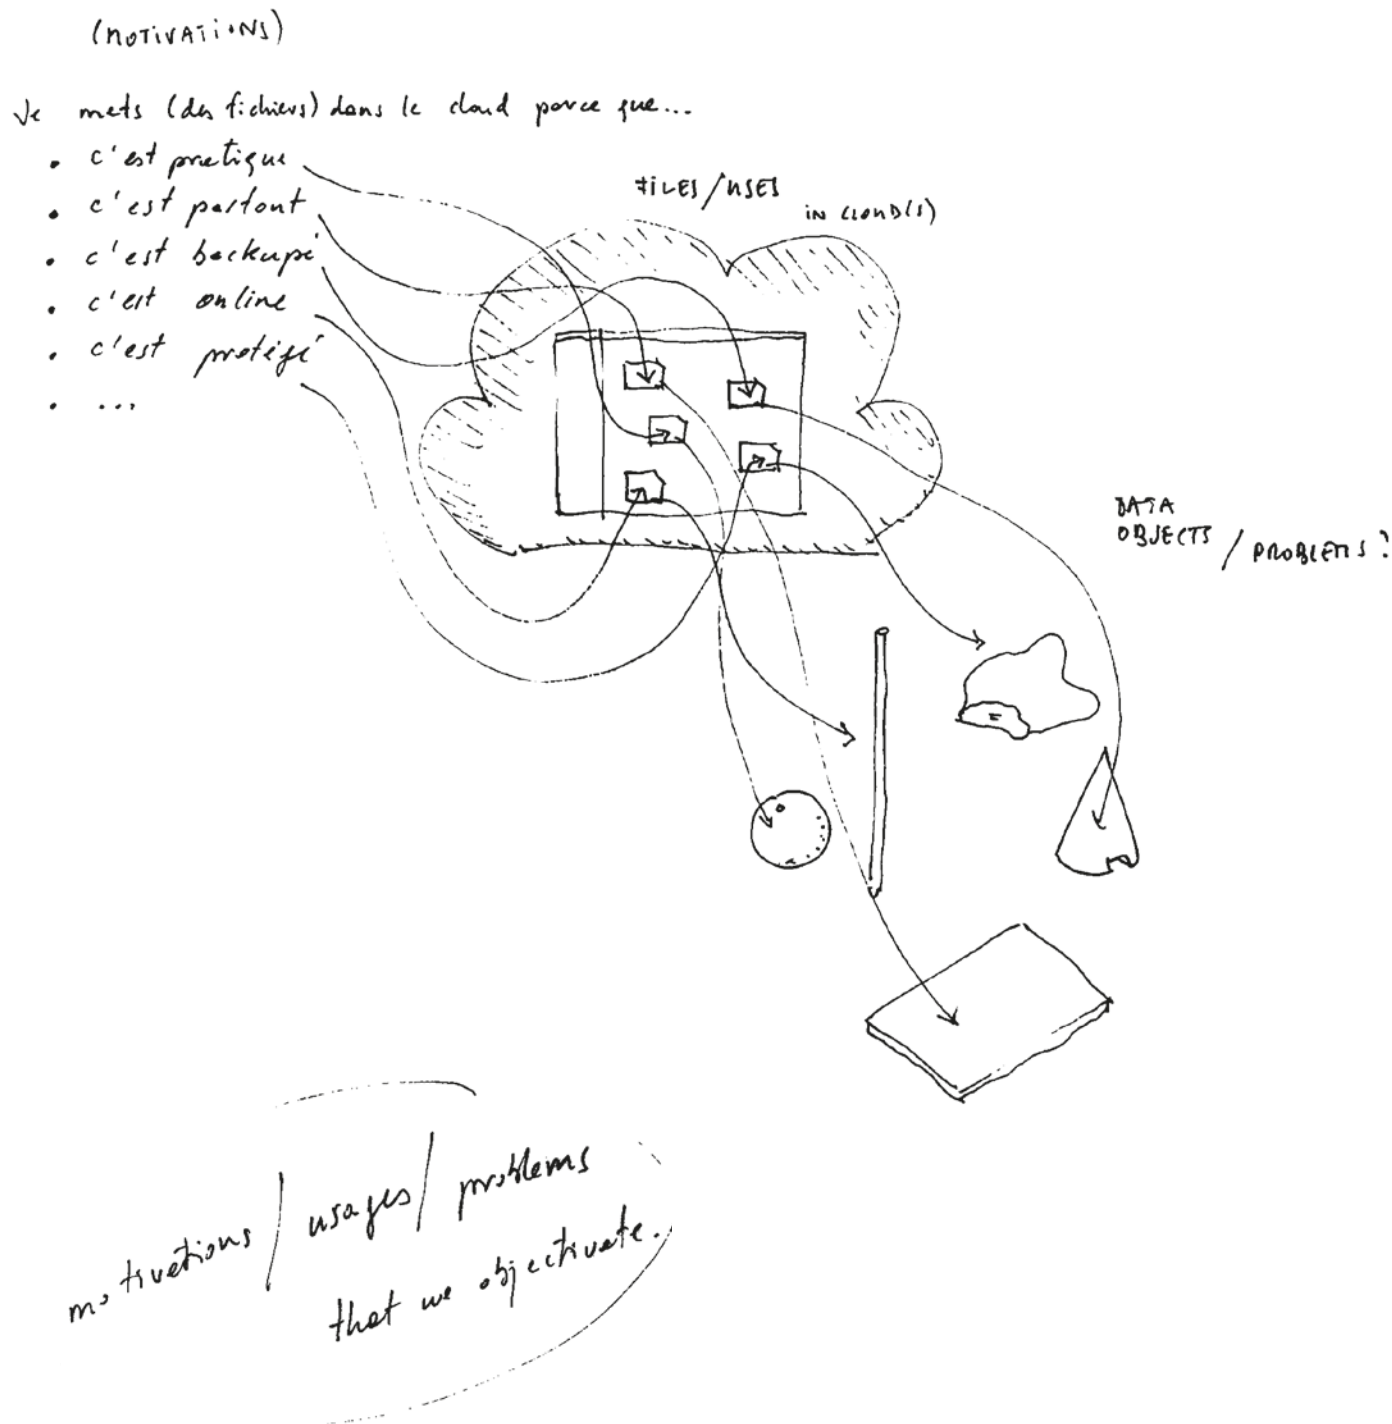 (MOTIVATIONS)
Je mets (des fichiers) dans le cloud parce que...
• c'est pratique
• c'est partout
• c'est backupé
• c'est online
• c'est protégé
• ...
FILES/USES
IN CLOUD(S)
DATA
OBJECTS / PROBLEMS?
motivations / usages / problems
that we objectivate.